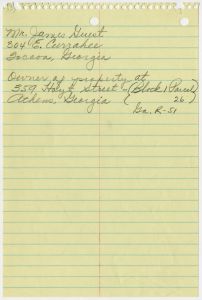 Mr. James Guest
304 E. Currahee
Toccoa, Georgia
Owner of property at
359 Hoyt Street (Block 1 Parcel
Athens, Georgia ( 26 )
Ga. R-51